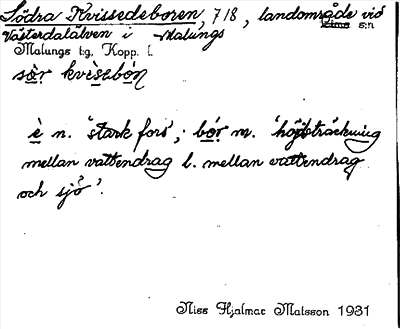 Södra Kvissedeboren, 718, landområde vid
Västerdalälven i Malungs s:n
Malungs tg, Kopp. l.
sø̀r kvìsebón
è n. 'stark fors'; bór m. 'höjdsträckning
mellan vattendrag l. mellan vattendrag
och sjö'.
Niss Hjalmar Matsson 1931